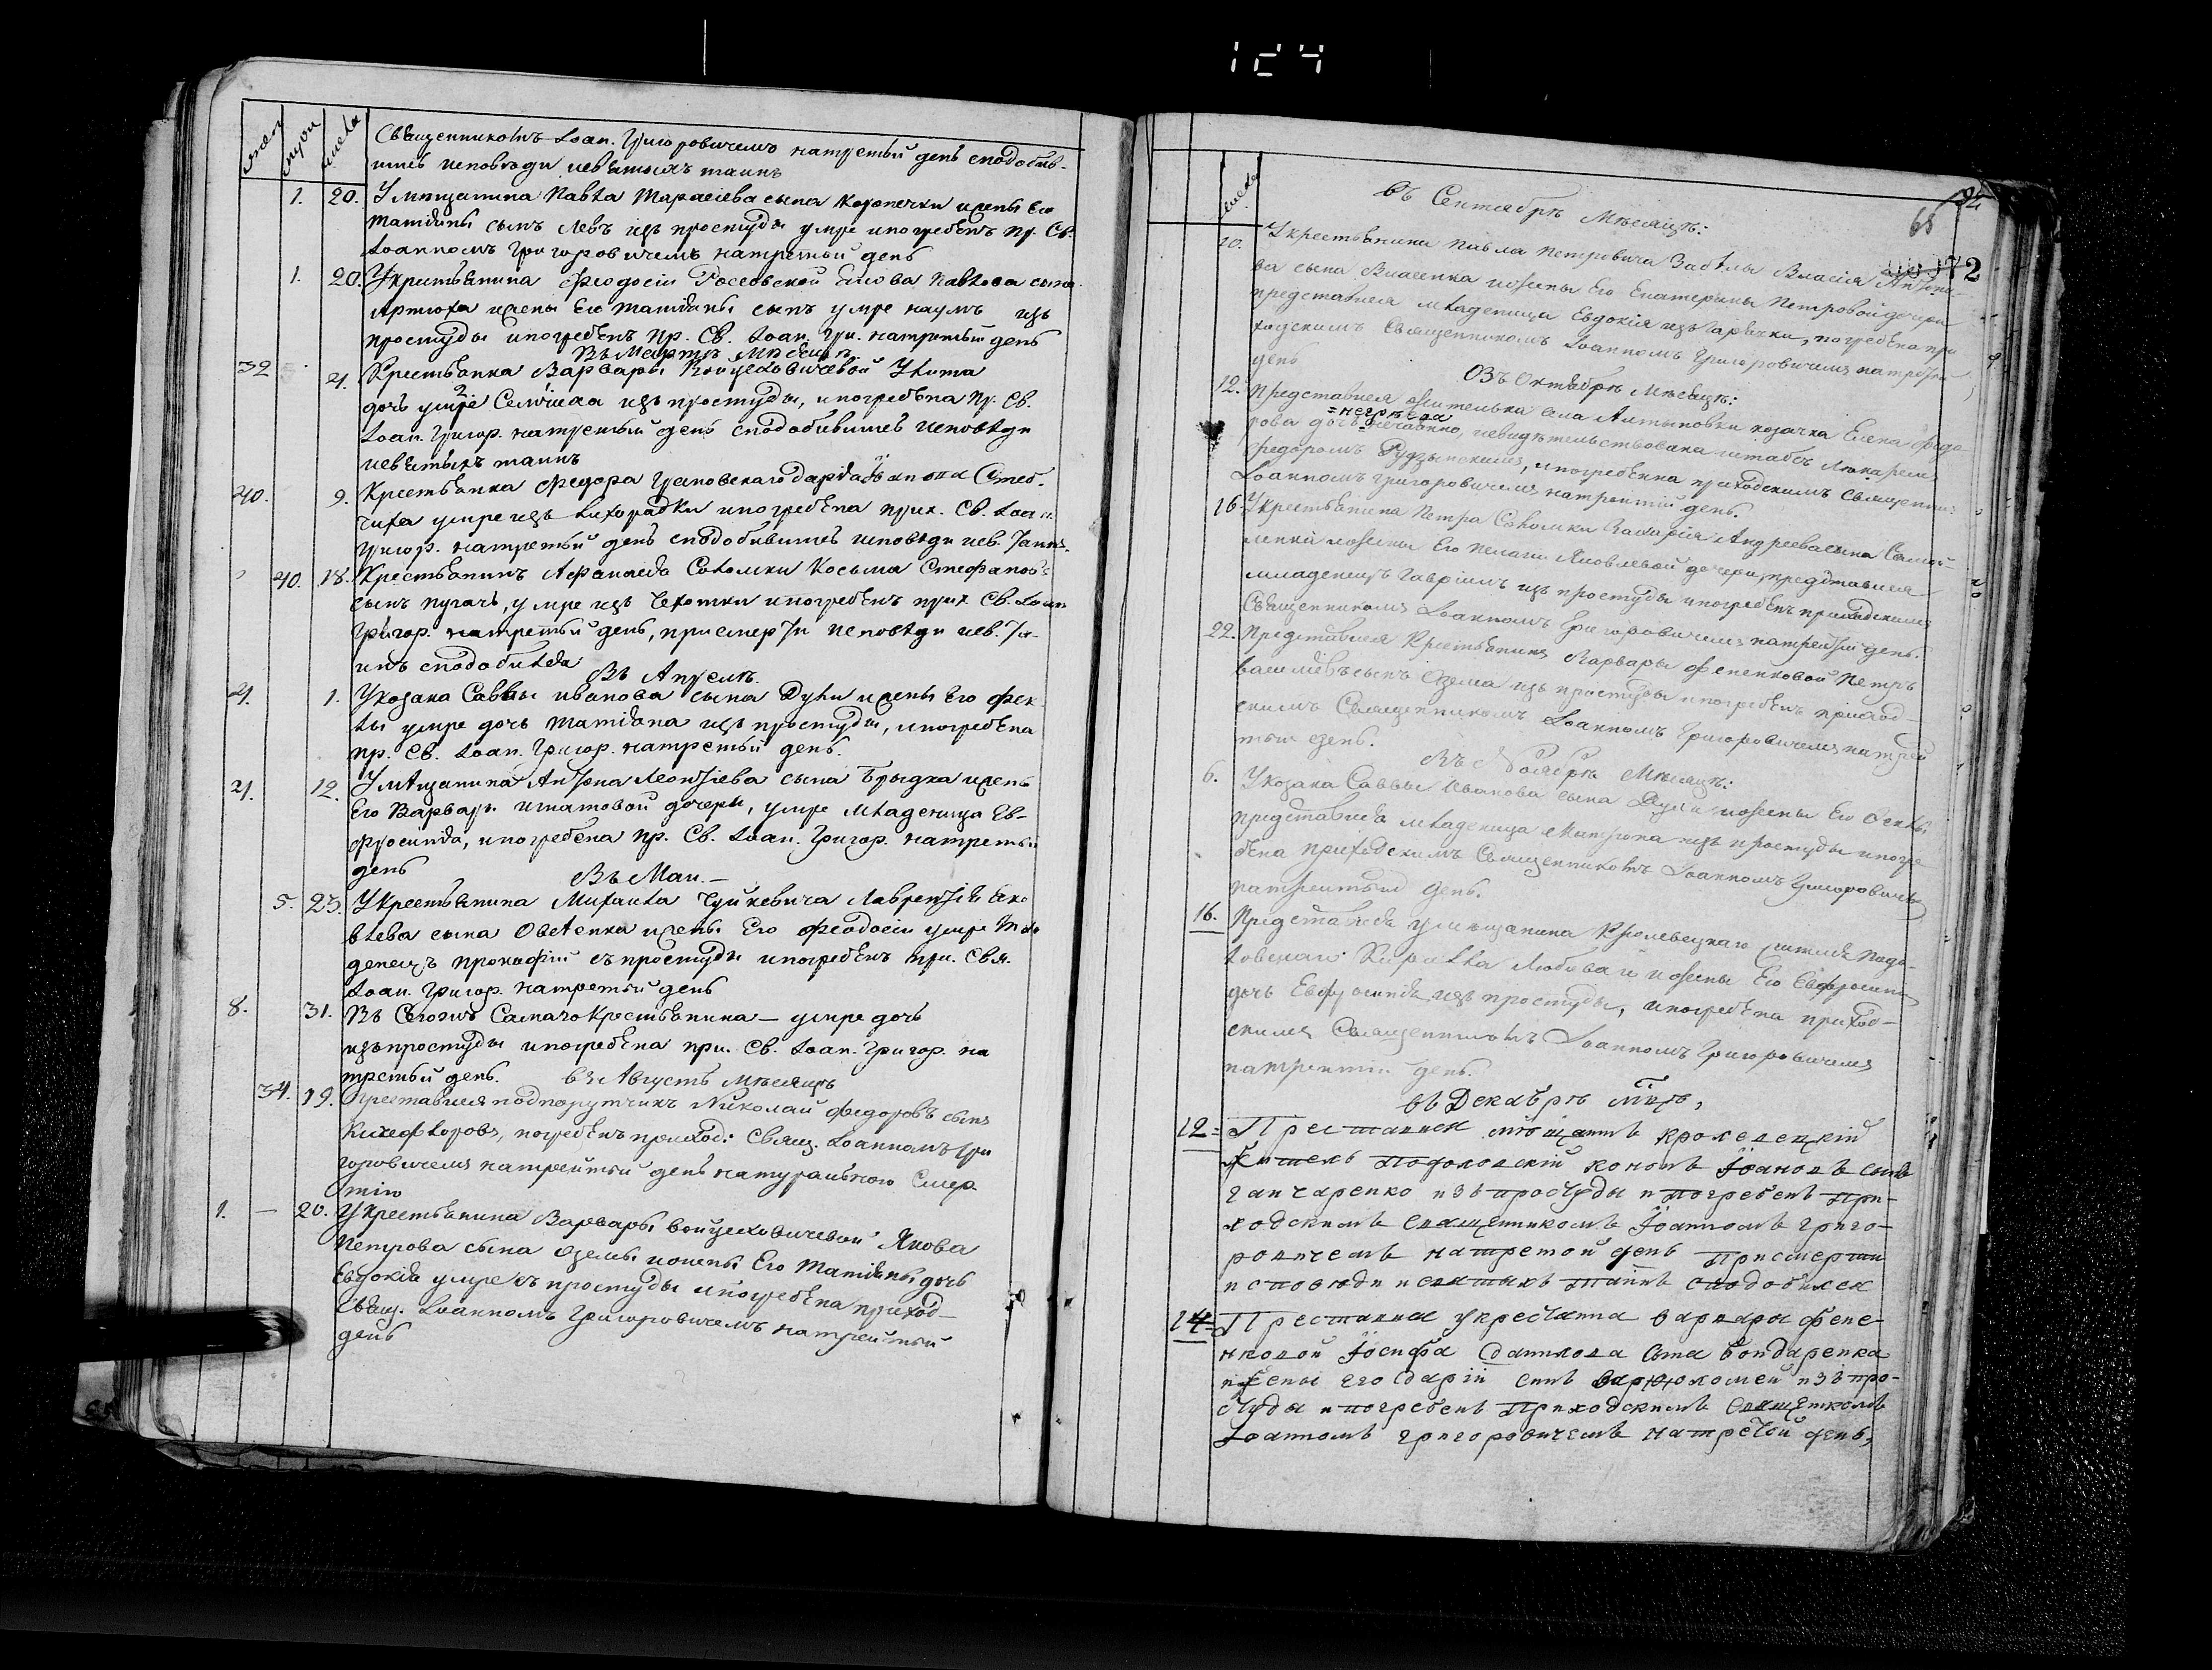 124
жен
муж
числа
Священникомъ Іоан. Григоровичемъ натретый день сподобив-
шись исповѣди исвятыхъ таинъ
1. 20. Умѣщанина Павла Тарасіева сына ижены Его
Татіаны сынъ Левъ изъ простуды умре ипогребенъ пр. Св.
Іоанномъ Григоровичемъ натретый день
1. 20. Укрестьянина Феодосіи Павлова сына
Артюха ижены Его Татіаны сынъ умре Наумъ изъ
простуды ипогребенъ пр. Св. Іоан. Гри. натретый день
Въ Мартѣ Мѣсяцѣ
32 21. Крестьянка Варвары Войцеховичевой
дочь умре изъ простуды, ипогребена пр. Св.
Іоан. Григор. натретый день сподобившись исповѣди
исвятыхъ таинъ
40. 9. Крестьянка Федора Дарія
умре изъ лихорадки ипогребена прих. Св. Іоан.
Григор. натретый день сподобившись исповѣди исв. таинъ.
40. 18. Крестьянинъ Афанасія Соломки Косьма Стефановъ
сынъ Пугачъ, умре изъ чехотки ипогребенъ прих. Св. Іоан
Григор. натретый день, присмерти исповѣди исв. та-
инъ сподобился
Въ Апрелѣ.
21. 1. Укозака Саввы Иванова сына Дули ижены Его Фек-
лы умре дочь Татіана изъ простуды, ипогребена
пр. Св. Іоан. Григор. натретый день.
21. 12. Умѣщанина Антона Леонтіева сына Брыдка ижены
Его Варвары Игнатовой дочери, умре младеница Ев-
фросинія, ипогребена пр. Св. Іоан. Григор. натретый
день
Въ Маи. —
5. 23. Укрестьянина Михаила Чуйкевича Лаврентія Яко
влева сына Овсѣенка ижены Его Феодосіи умре Мла
денецъ Прокофій съпростуды ипогребенъ при. Свя.
Іоан. Григор. натретый день
8. 31. Въ Сегожъ Самаго Крестьянина — умре дочь
изъ простуды ипогребена при. Св. Іоан. Григор. на
третый день.
въ Августѣ Мѣсяцѣ
34. 19. Преставился подпорутчикъ Николай Федоровъ сынъ
погребенъ приход: Свящ. Іоанномъ Гри
горовичемъ натрейтый день натуральною Смер-
тію
1. — 20. Укрестьянина Варвары Войцеховичевой Якова
Петрова сына Оземы ижены Его Татіаны дочь
Евдокія умре съ простуды ипогребена приход-
Свящ. Іоанномъ Григоровичемъ натрейтый
день
числа
65
72
въ Сентябрѣ Мѣсяцѣ:
10. Укрестьянина Павла Петровича Забѣлы Власія Антоно-
ва сына Власенка ижены Его Екатерины Петровой дочери
преставися младеница Евдокія изъ погребена при
ходскимъ Священникомъ Іоанномъ Григоровичемъ натретый
день
Въ Октябрѣ Мѣсяцѣ:
12. Преставися жителька села Алтыновки козачка Елена Федо
рова дочь нечаянно, исвидѣтельствована штабъ лекаремъ
Федоромъ ипогребенна приходскимъ Священни:
Іоанномъ Григоровичемъ натрейтій день.
16. Укрестьянина Петра Соломки Захарія Андреева сына
ижены Его Пелагіи Яковлевой дочери, преставися
младенецъ Гавріилъ изъ простуды ипогребенъ приходскимъ
Священникомъ Іоанномъ Григоровичемъ натретый день.
22. Преставися Крестьянинъ Варвары Фененковой Петръ
сынъ Озема изъ простуды ипогребенъ приход-
скимъ Священникомъ Іоанномъ Григоровичемъ натрей
тый день.
Въ Ноябрѣ Мѣсяцѣ:
6. Укозака Саввы Иванова сына Дули ижены Его Феклы
преставися младеница Матрона изъ простуды ипогре
бена приходскимъ Священникомъ Іоанномъ Григоровичемъ
натрейтый день.
16. Преставися умѣщанина Кролевецкаго жителя Подо-
ловскаго Кирилла ижены Его Евфросиніи
дочь Евфросинія изъ простуды, ипогребена приход-
скимъ Священникомъ Іоанномъ Григоровичемъ
натрейтій день.
въ Декабрѣ мцѣ,
12= Преставися мѣщанинъ кролевецкій
житель Подоловскій Кононъ Іоановъ сынъ
Ганчаренко изъ простуды и погребенъ При-
ходскимъ священикомъ Іоанномъ Григо-
ровичемъ натретой день Присмерти
исповѣди исвятыхъ таинъ сподобился
14= Преставися укрестянина варвары фене-
нковой Іосифа Данилова сына Бондаренка
ижены его Даріи синъ варфоломей изъ про-
студы и погребенъ Приходскимъ священикомъ
Іоанномъ григоровичемъ натретой день,